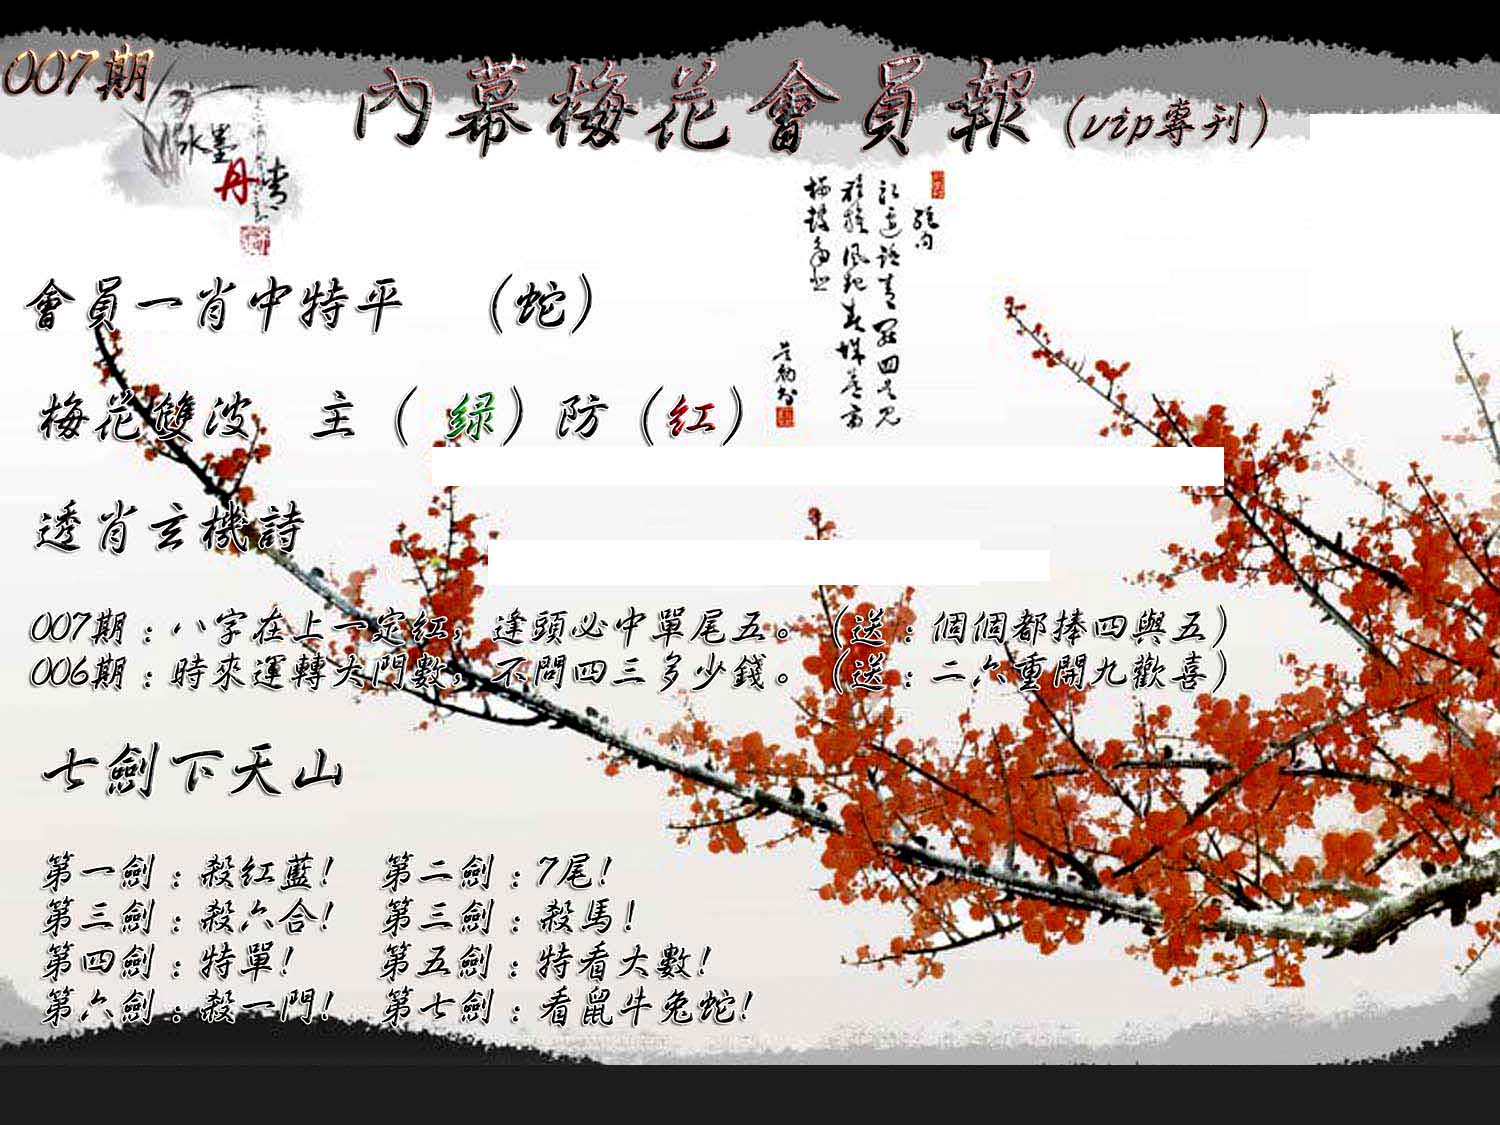 007期
內幕梅花會員報(vip專刊)
水墨
丹青
會員一肖中特平 (蛇)
梅花雙波 主(绿)防(红)
透肖玄機詩
007期:八字在上一定紅,逢頭必中單尾五。(送:個個都捧四與五)
006期:時來運轉大門數,不問四三多少錢。(送:二六重開九歡喜)
七劍下天山
第一劍:殺紅藍! 第二劍:7尾!
第三劍:殺六合! 第三劍:殺馬!
第四劍:特單! 第五劍:特看大數!
第六劍:殺一門! 第七劍:看鼠牛兔蛇!